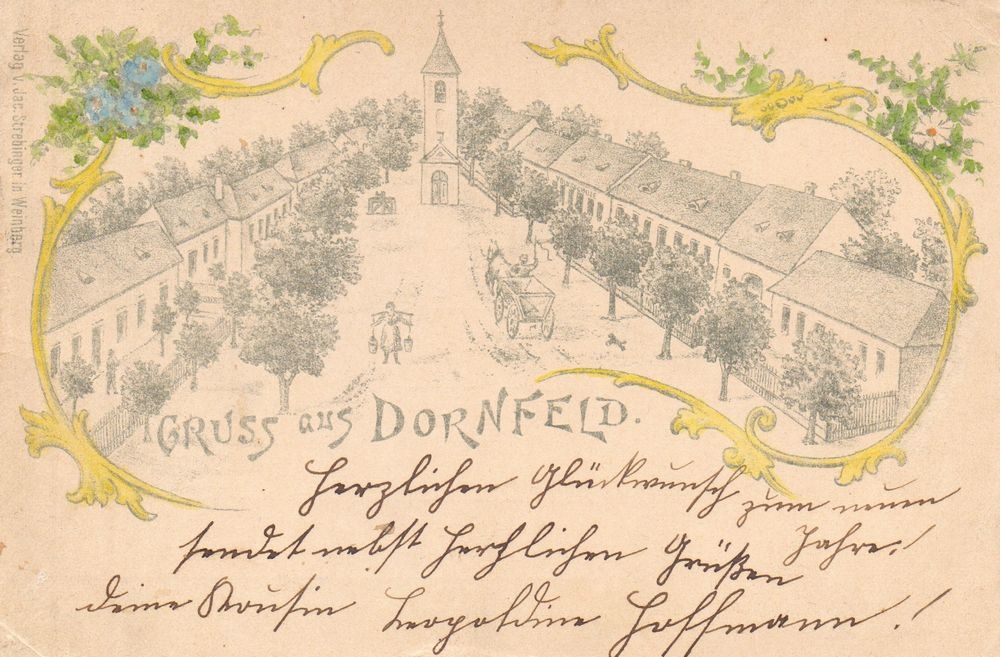 Verlag v. Jac. Strehinger in Weinberg
GRUSS aus DORNFELD.
Herzlichen Glückwunsch zum neuen
Jahre!
sendet nebst herzlichen Grüßen
deine Kousin Leopoldine Hoffmann!